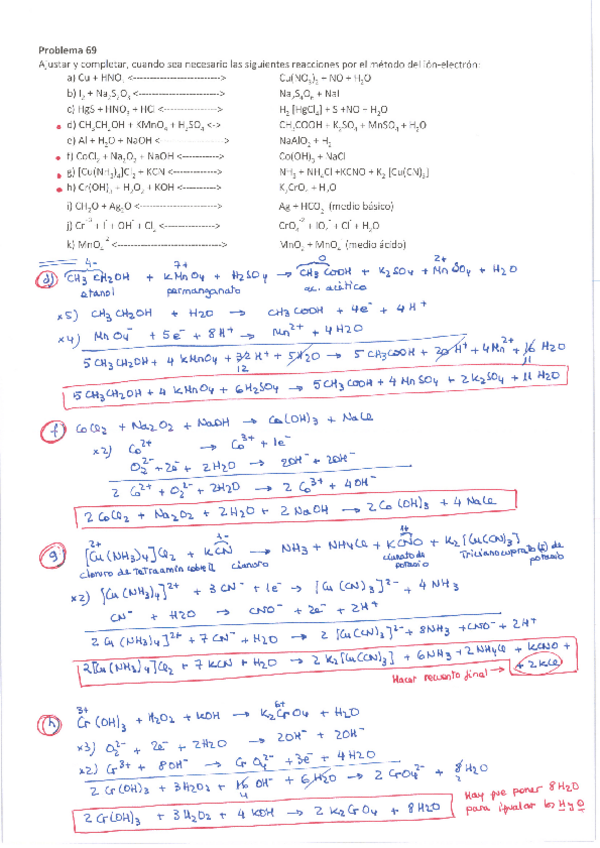 Problema 69
Ajustar y completar, cuando sea necesario las siguientes reacciones por el método del ión-electrón:
a) Cu + HNO₃ <--------------------------> Cu(NO₃)₂ + NO + H₂O
b) I₂ + Na₂S₂O₃ <-------------------------> Na₂S₄O₆ + NaI
c) HgS + HNO₃ + HCl <----------------> H₂ [HgCl₄] + S + NO + H₂O
d) CH₃CH₂OH + KMnO₄ + H₂SO₄ <-> CH₃COOH + K₂SO₄ + MnSO₄ + H₂O
e) Al + H₂O + NaOH <--------------------> NaAlO₂ + H₂
f) CoCl₂ + Na₂O₂ + NaOH <-----------> Co(OH)₃ + NaCl
g) [Cu(NH₃)₄]Cl₂ + KCN <--------------> NH₃ + NH₄Cl +KCNO + K₂ [Cu(CN)₃]
h) Cr(OH)₃ + H₂O₂ + KOH <-----------> K₂CrO₄ + H₂O
i) CH₂O + Ag₂O <------------------------> Ag + HCO₂ (medio básico)
j) Cr⁺³ + I⁻ + OH⁻ + Cl₂ <---------------> CrO₄⁻² + IO₄⁻ + Cl⁻ + H₂O
k) MnO₄⁻² <--------------------------------> MnO₂ + MnO₄⁻ (medio ácido)
4- 7+ 0 2+
d) CH₃CH₂OH + KMnO₄ + H₂SO₄ → CH₃COOH + K₂SO₄ + MnSO₄ + H₂O
etanol permanganato ac. acético
x5) CH₃CH₂OH + H₂O → CH₃COOH + 4e⁻ + 4H⁺
x4) MnO₄⁻ + 5e⁻ + 8H⁺ → Mn²⁺ + 4H₂O
5CH₃CH₂OH + 4KMnO₄ + 32H⁺ + 5H₂O → 5CH₃COOH + 20H⁺ + 4Mn²⁺ + 16H₂O
12 11
5CH₃CH₂OH + 4KMnO₄ + 6H₂SO₄ → 5CH₃COOH + 4MnSO₄ + 2K₂SO₄ + 11H₂O
f) CoCl₂ + Na₂O₂ + NaOH → Co(OH)₃ + NaCl
x2) Co²⁺ → Co³⁺ + 1e⁻
O₂²⁻ + 2e⁻ + 2H₂O → 2OH⁻ + 2OH⁻
2Co²⁺ + O₂²⁻ + 2H₂O → 2Co³⁺ + 4OH⁻
2CoCl₂ + Na₂O₂ + 2H₂O + 2NaOH → 2Co(OH)₃ + 4NaCl
2+ 1- 1+
g) [Cu(NH₃)₄]Cl₂ + KCN → NH₃ + NH₄Cl + KCNO + K₂[Cu(CN)₃]
cloruro de tetraamincobre II cianuro cianato de potasio Tricianocuprato (I) de potasio
x2) [Cu(NH₃)₄]²⁺ + 3CN⁻ + 1e⁻ → [Cu(CN)₃]²⁻ + 4NH₃
CN⁻ + H₂O → CNO⁻ + 2e⁻ + 2H⁺
2[Cu(NH₃)₄]²⁺ + 7CN⁻ + H₂O → 2[Cu(CN)₃]²⁻ + 8NH₃ + CNO⁻ + 2H⁺
2[Cu(NH₃)₄]Cl₂ + 7KCN + H₂O → 2K₂[Cu(CN)₃] + 6NH₃ + 2NH₄Cl + KCNO +
Hacer recuento final → + 2KCl
3+ 6+
h) Cr(OH)₃ + H₂O₂ + KOH → K₂CrO₄ + H₂O
x3) O₂²⁻ + 2e⁻ + 2H₂O → 2OH⁻ + 2OH⁻
x2) Cr³⁺ + 8OH⁻ → CrO₄²⁻ + 3e⁻ + 4H₂O
2Cr(OH)₃ + 3H₂O₂ + 16OH⁻ + 6H₂O → 2CrO₄²⁻ + 8H₂O
4 2
2Cr(OH)₃ + 3H₂O₂ + 4KOH → 2K₂CrO₄ + 8H₂O
Hay que poner 8H₂O
para igualar los H y O